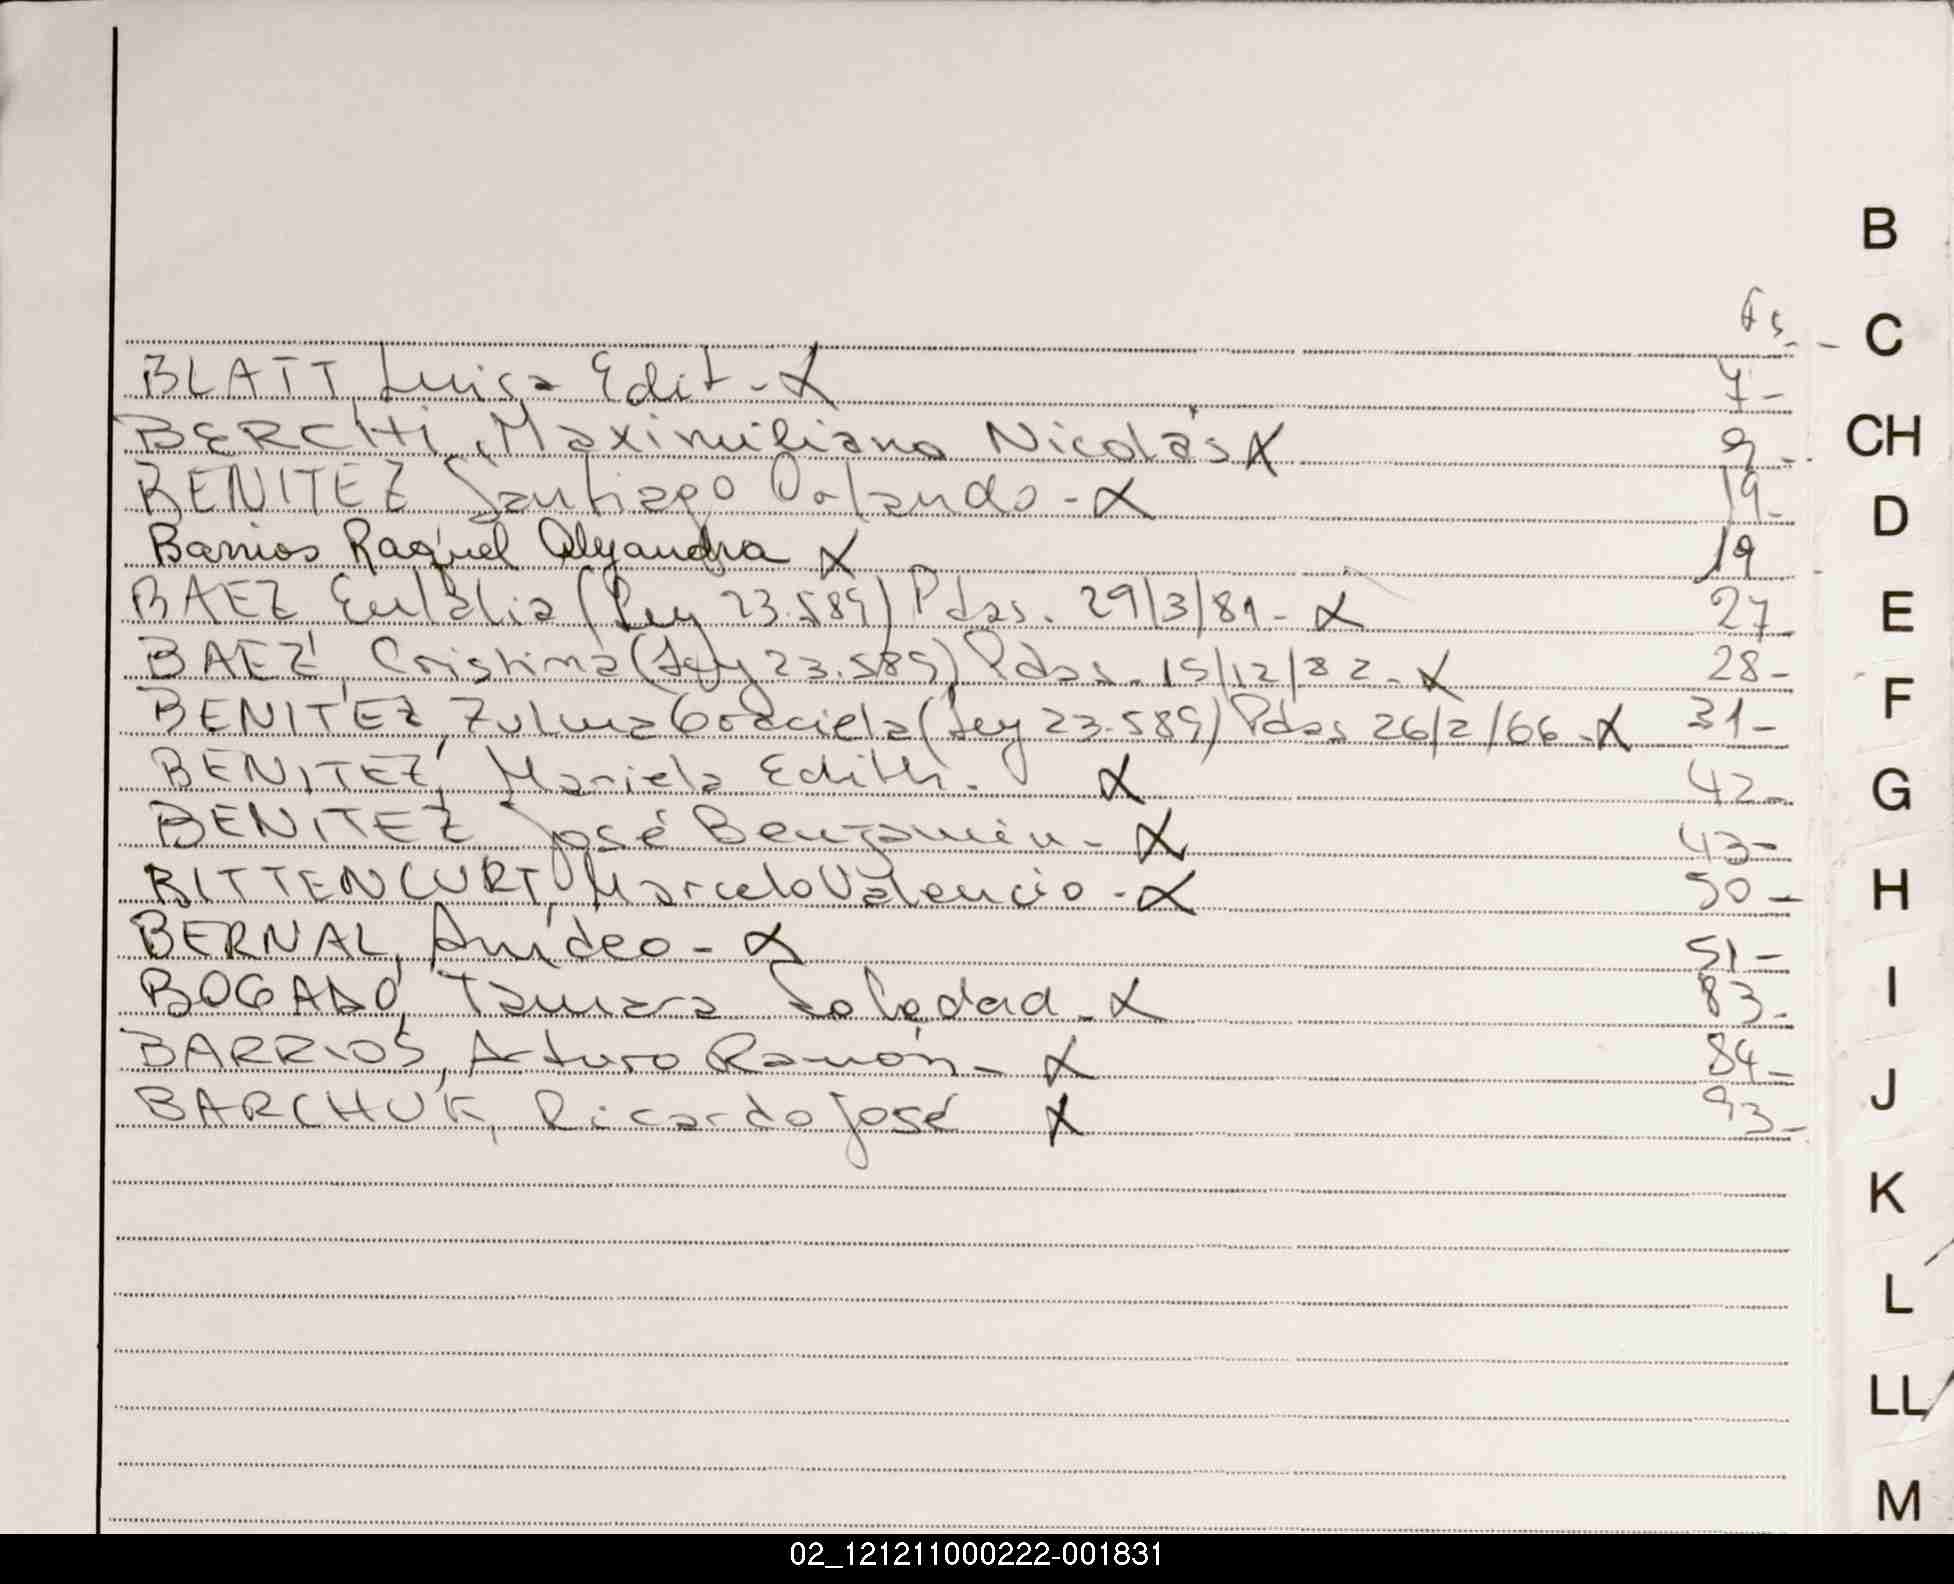 B
Fs.
C
BLATT, Luisa Edit - X 7 -
BERCHI, Maximiliano Nicolás X 9 -
CH
BENITEZ Santiago Orlando - X 19 -
D
Barrios Raquel Alejandra X 19
BAEZ Eulalia (Ley 23.589) Pdas. 29/3/81 - X 27 -
E
BAEZ, Cristina (Ley 23.589) Pdas. 15/12/82 - X 28 -
BENITEZ, Zulma Graciela (Ley 23.589) Pdas 26/2/66 - X 31 -
F
BENITEZ, Mariela Edith. X 42 -
G
BENITEZ José Benjamín - X 43 -
BITTENCURT, Marcelo Valencio - X 50 -
H
BERNAL, Amideo - X 51 -
BOGADO, Tamara Soledad - X 83 -
I
BARRIOS, Arturo Ramón - X 84 -
BARCHUK, Ricardo José X 93 -
J
K
L
LL
M
02_121211000222-001831